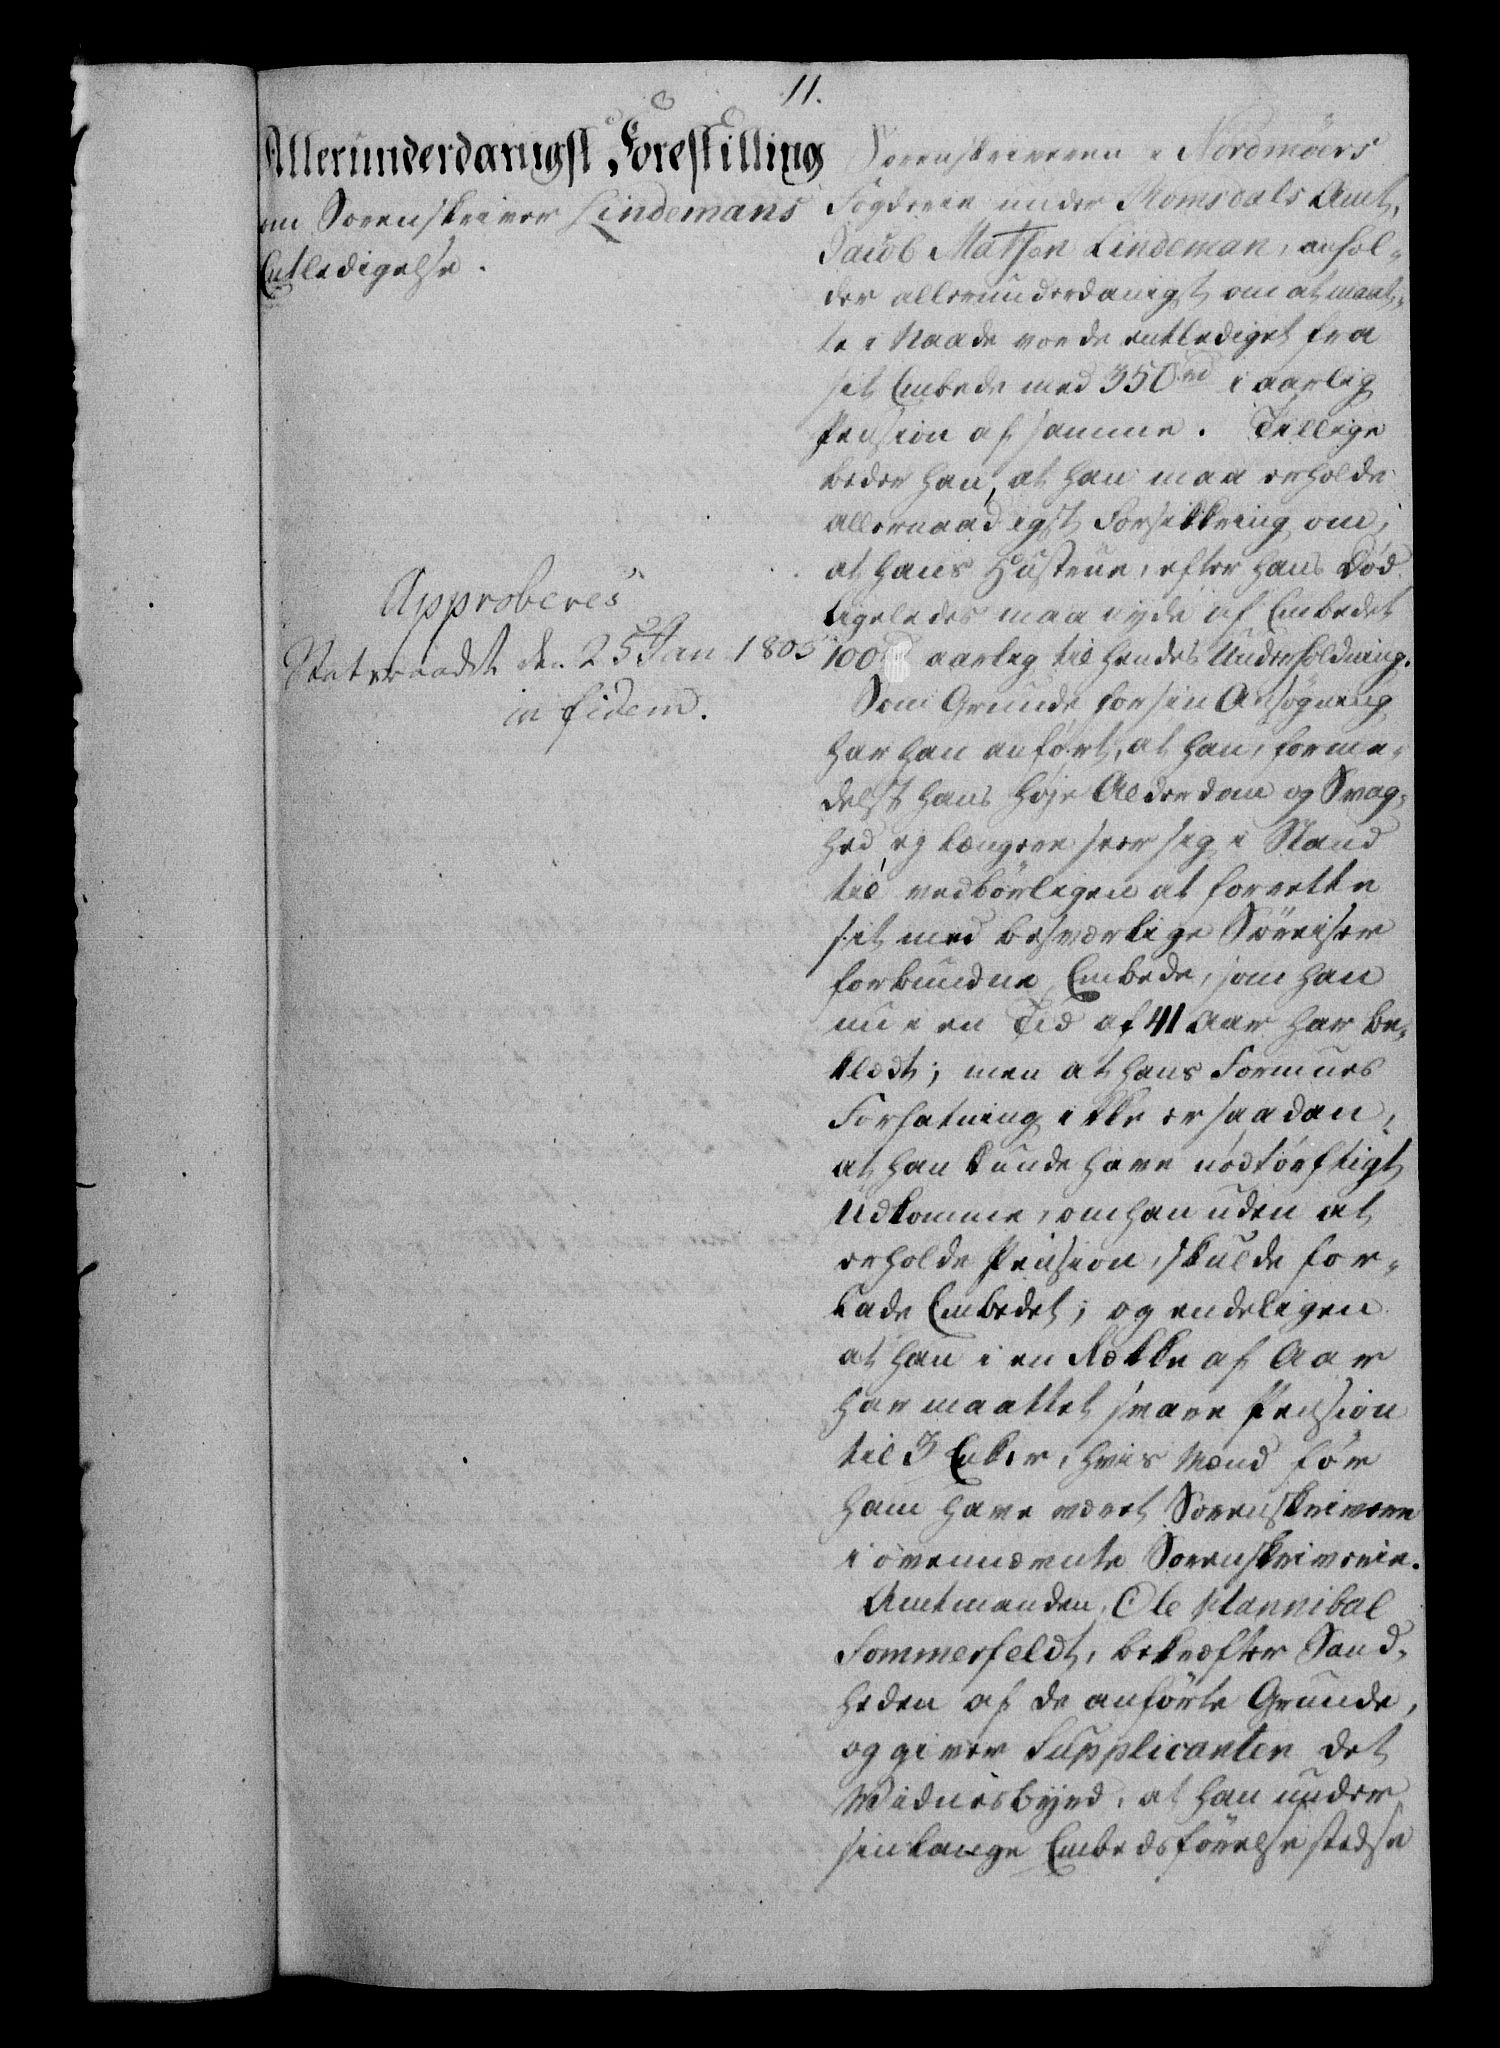 11.
Allerunderdanigst Forestilling
om Sorenskriver Lindemans
Entledigelse.
Approberes
Statsraadet den 25 Jan 1805
in fidem.
Sorenskriveren i Nordmöers
Fogderie under Romsdals Amt,
Jacob Matson Lindeman, anhol-
der allerunderdanigst om at maat-
te i Naade vorde entlediget fra
sit Embede med 350 rd i aarlig
Pension af samme. Tillige
beder han, at han maa erholde
allernaadigst Forsikkring om,
at hans Hustrue, efter hans Död
ligeledes maa nyde af Embedet
100 aarlig til hendes Underholdning.
Som Grunde for sin Ansögning
har han anfört, at han, forme-
delst hans höje Alderdom og Svag-
hed, ej længere seer sig i Stand
til vedbörligen at forrette
sit med besværlige Söreiser
forbundne Embede, som han
nu i en Tid af 41 Aar har be-
klædt; men at hans Formues
Forfatning ikke er saadan,
at han kunde have nödtörftigt
Udkomme, om han uden at
erholde Pension, skulde for-
lade Embedet; og endeligen
at han i en Række af Aar
har maattet svare Pension
til 3 Enker, hvis Mænd för
ham have været Sorenskrivere
i ovennævnte Sorenskriverie.
Amtmanden, Ole Hannibal
Sommerfeldt, bekræfter Sand-
heden af de anförte Grunde,
og giver Supplicanten det
Widnesbyrd, at han under
sin lange Embedsförelse stedse